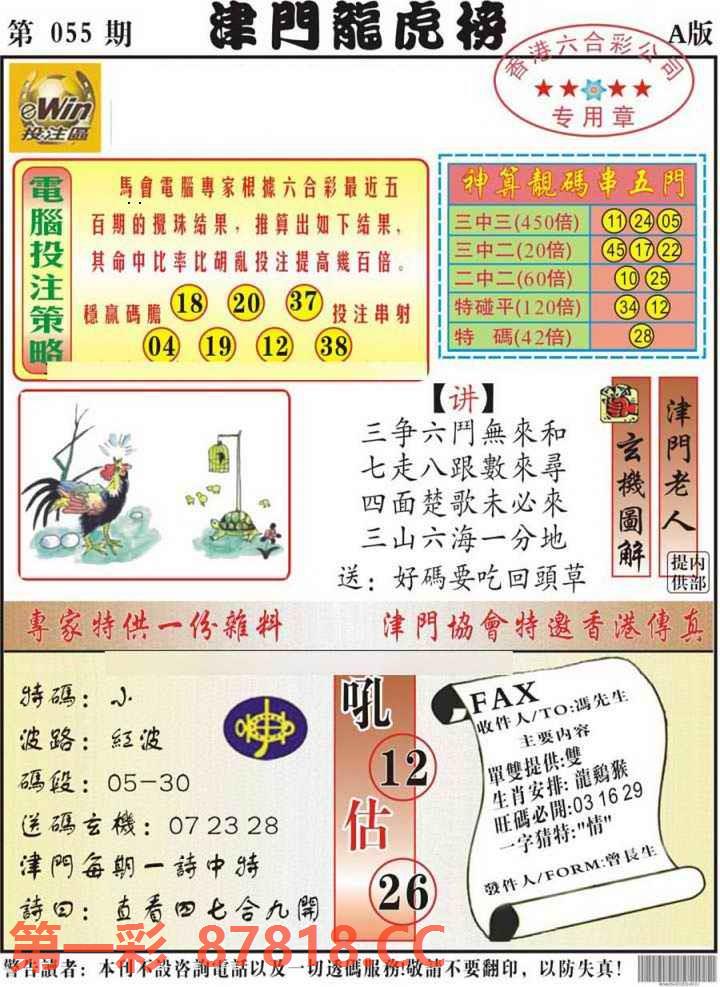 第 055 期
津門龍虎榜
A版
香港六合彩公司
专用章
eWin
投注區
電腦投注策略
馬會電腦專家根據六合彩最近五
百期的攪珠结果，推算出如下结果，
其命中比率比胡亂投注提高幾百倍。
穩贏碼膽 18 20 37 投注串射
04 19 12 38
神算靚碼串五門
三中三(450倍) 11 24 05
三中二(20倍) 45 17 22
二中二(60倍) 10 25
特碰平(120倍) 34 12
特 碼(42倍) 28
【讲】
三争六鬥無來和
七走八跟數來尋
四面楚歌未必來
三山六海一分地
送：好碼要吃回頭草
玄機圖解
津門老人
内部提供
專家特供一份雜料
津門協會特邀香港傳真
特碼：小
波路：紅波
碼段：05-30
送碼玄機：07 23 28
津門每期一詩中特
詩曰：直看四七合九開
吼
12
估
26
FAX
收件人/TO:馮先生
主要内容
單雙提供:雙
生肖安排:龍鷄猴
旺碼必開:03 16 29
一字猜特:"情"
發件人/FORM:曾長生
第一彩 87818.CC
警告讀者：本刊不設咨詢電話以及一切透碼服務!敬請不要翻印，以防失真!